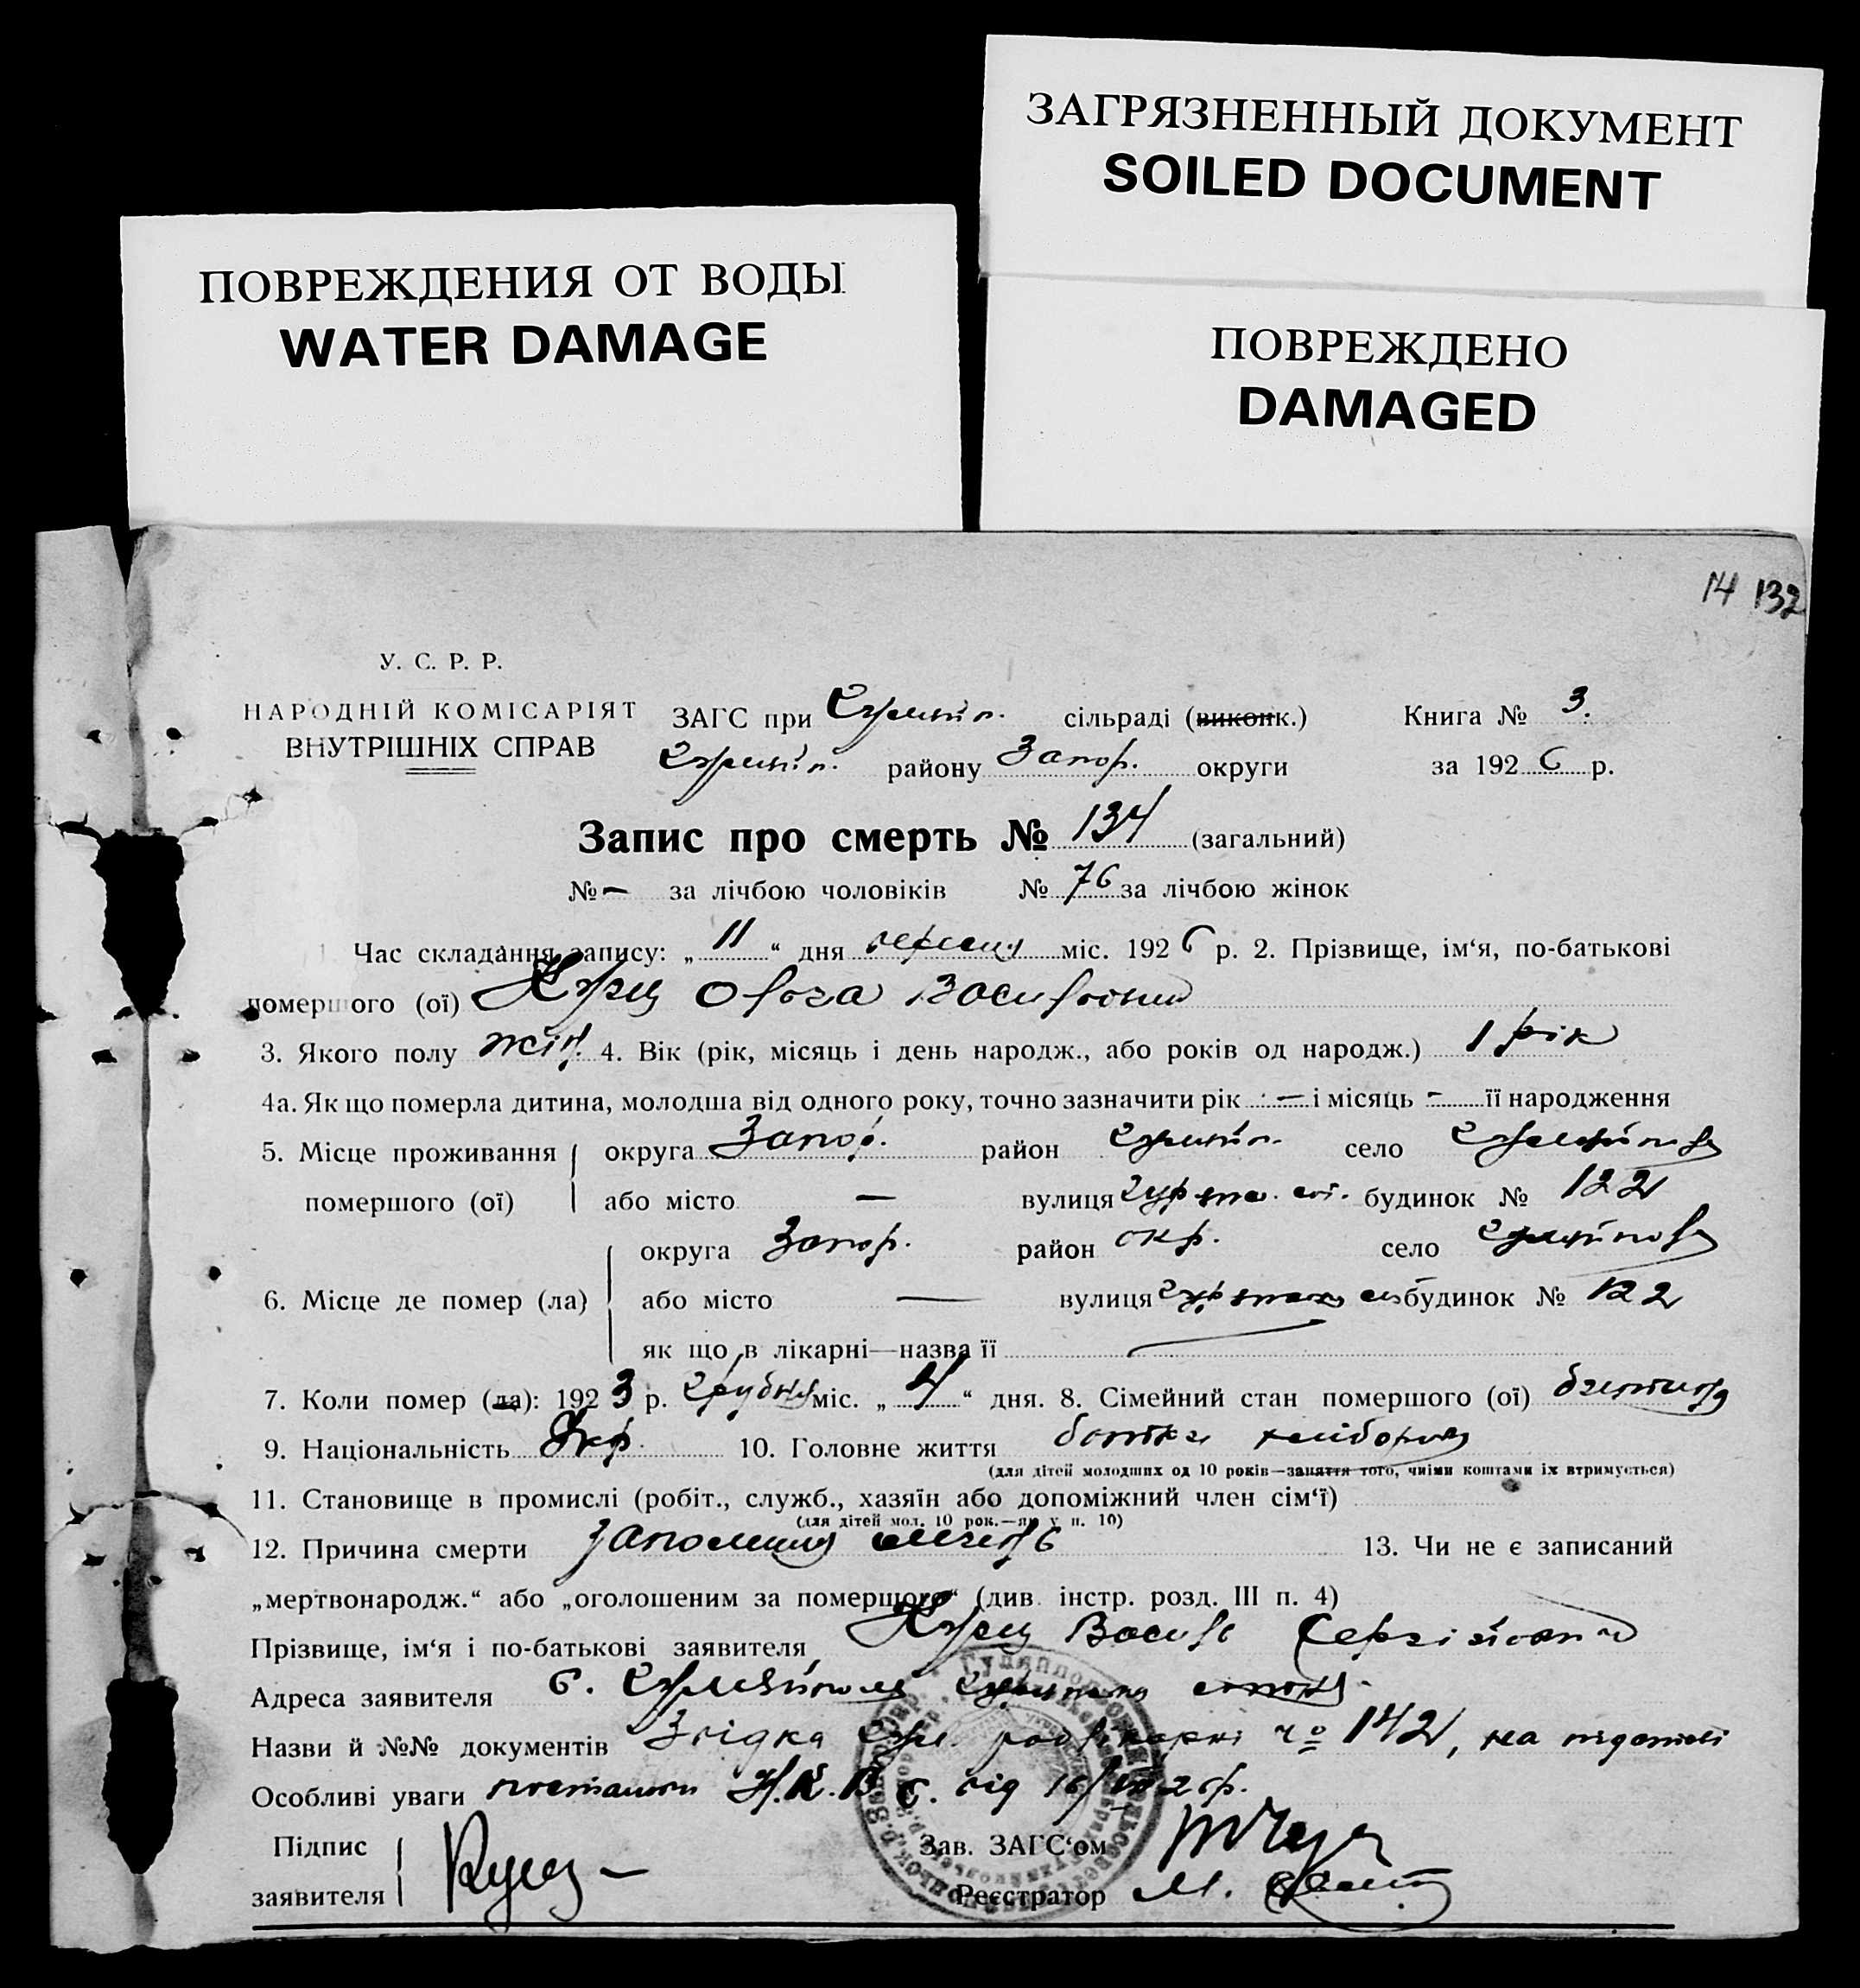 ЗАГРЯЗНЕННЫЙ ДОКУМЕНТ
SOILED DOCUMENT
ПОВРЕЖДЕНИЯ ОТ ВОДЫ
WATER DAMAGE
ПОВРЕЖДЕНО
DAMAGED
14 132
У. С. Р. Р.
НАРОДНІЙ КОМІСАРІЯТ
ВНУТРІШНІХ СПРАВ
ЗАГС при сільраді (виконк.) Книга № 3.
району Запор. округи за 1926 р.
Запис про смерть № 134 (загальний)
№ — за лічбою чоловіків № 76 за лічбою жінок
1. Час складання запису: „ 11 “ дня вересня міс. 1926 р. 2. Прізвище, ім‘я, по-батькові
помершого (ої) Куец Ольга Василівна
3. Якого полу жін. 4. Вік (рік, місяць і день народж., або років од народж.) 1 рік
4а. Як що померла дитина, молодша від одного року, точно зазначити рік — і місяць - її народження
5. Місце проживання округа Запор. район село
помершого (ої) або місто — вулиця будинок № 122
округа Запор. район окр. село
6. Місце де помер (ла) або місто — вулиця будинок № 122
як що в лікарні—назва її —
7. Коли помер (ла): 1923 р. грудня міс. „ 4 “ дня. 8. Сімейний стан помершого (ої) дитина
9. Національність Укр. 10. Головне життя батька хлібороб
(для дітей молодших од 10 років—заняття того, чиїми коштами їх втримується)
11. Становище в промислі (робіт., служб., хазяїн або допоміжний член сім‘ї)
(для дітей мол. 10 рок.—як у п. 10)
12. Причина смерти запалення легень 13. Чи не є записаний
„мертвонародж.“ або „оголошеним за помершого“ (див. інстр. розд. III п. 4)
Прізвище, ім‘я і по-батькові заявителя Куец Василь Сергійович
Адреса заявителя с.
Назви й №№ документів № 142, на підставі
Особливі уваги постанови Н.К.В.С. від
Підпис
заявителя
Зав. ЗАГС‘ом
Реєстратор М.